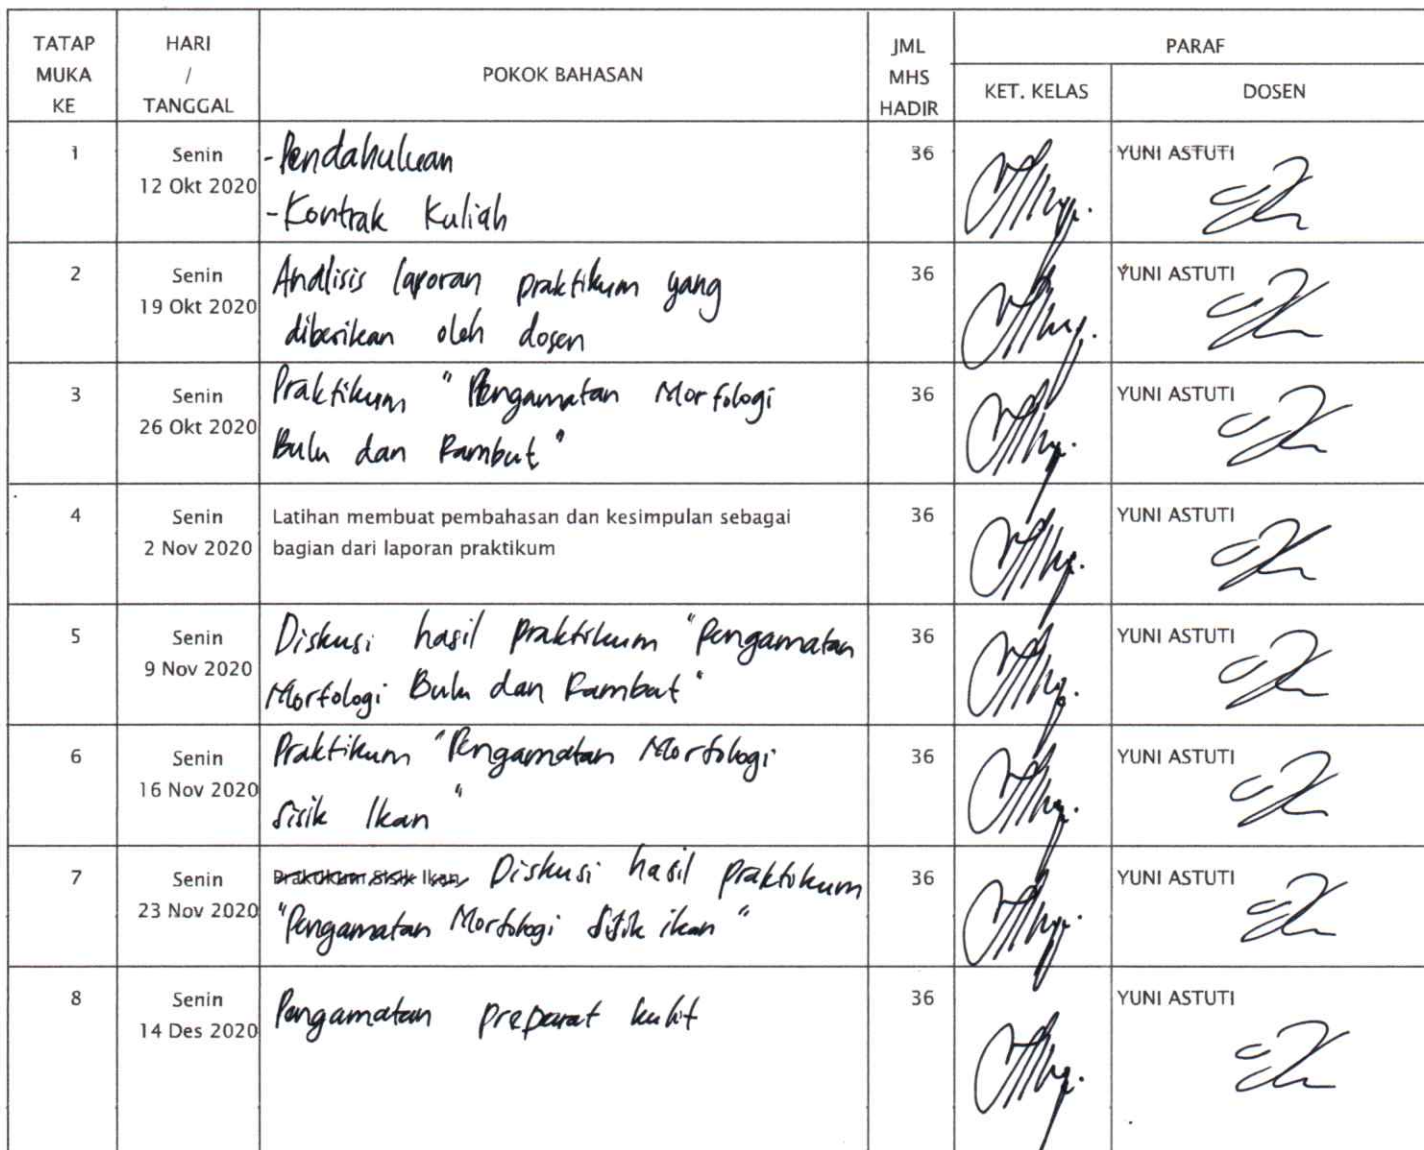 TATAP MUKA KE
HARI / TANGGAL
POKOK BAHASAN
JML MHS HADIR
PARAF
KET. KELAS
DOSEN
1
Senin
12 Okt 2020
- Pendahuluan
- Kontrak Kuliah
36
YUNI ASTUTI
2
Senin
19 Okt 2020
Analisis laporan praktikum yang
diberikan oleh dosen
36
YUNI ASTUTI
3
Senin
26 Okt 2020
Praktikum "Pengamatan Morfologi
Bulu dan Rambut"
36
YUNI ASTUTI
4
Senin
2 Nov 2020
Latihan membuat pembahasan dan kesimpulan sebagai
bagian dari laporan praktikum
36
YUNI ASTUTI
5
Senin
9 Nov 2020
Diskusi hasil praktikum "Pengamatan
Morfologi Bulu dan Rambut"
36
YUNI ASTUTI
6
Senin
16 Nov 2020
Praktikum "Pengamatan Morfologi
Sisik Ikan"
36
YUNI ASTUTI
7
Senin
23 Nov 2020
Praktikum Sisik Ikan Diskusi hasil praktikum
"Pengamatan Morfologi Sisik ikan"
36
YUNI ASTUTI
8
Senin
14 Des 2020
Pengamatan preparat kulit
36
YUNI ASTUTI